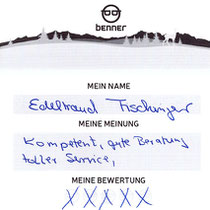 benner
MEIN NAME
Edeltraud Fischinger
MEINE MEINUNG
Kompetent, gute Beratung
toller Service,
MEINE BEWERTUNG
X X X X X